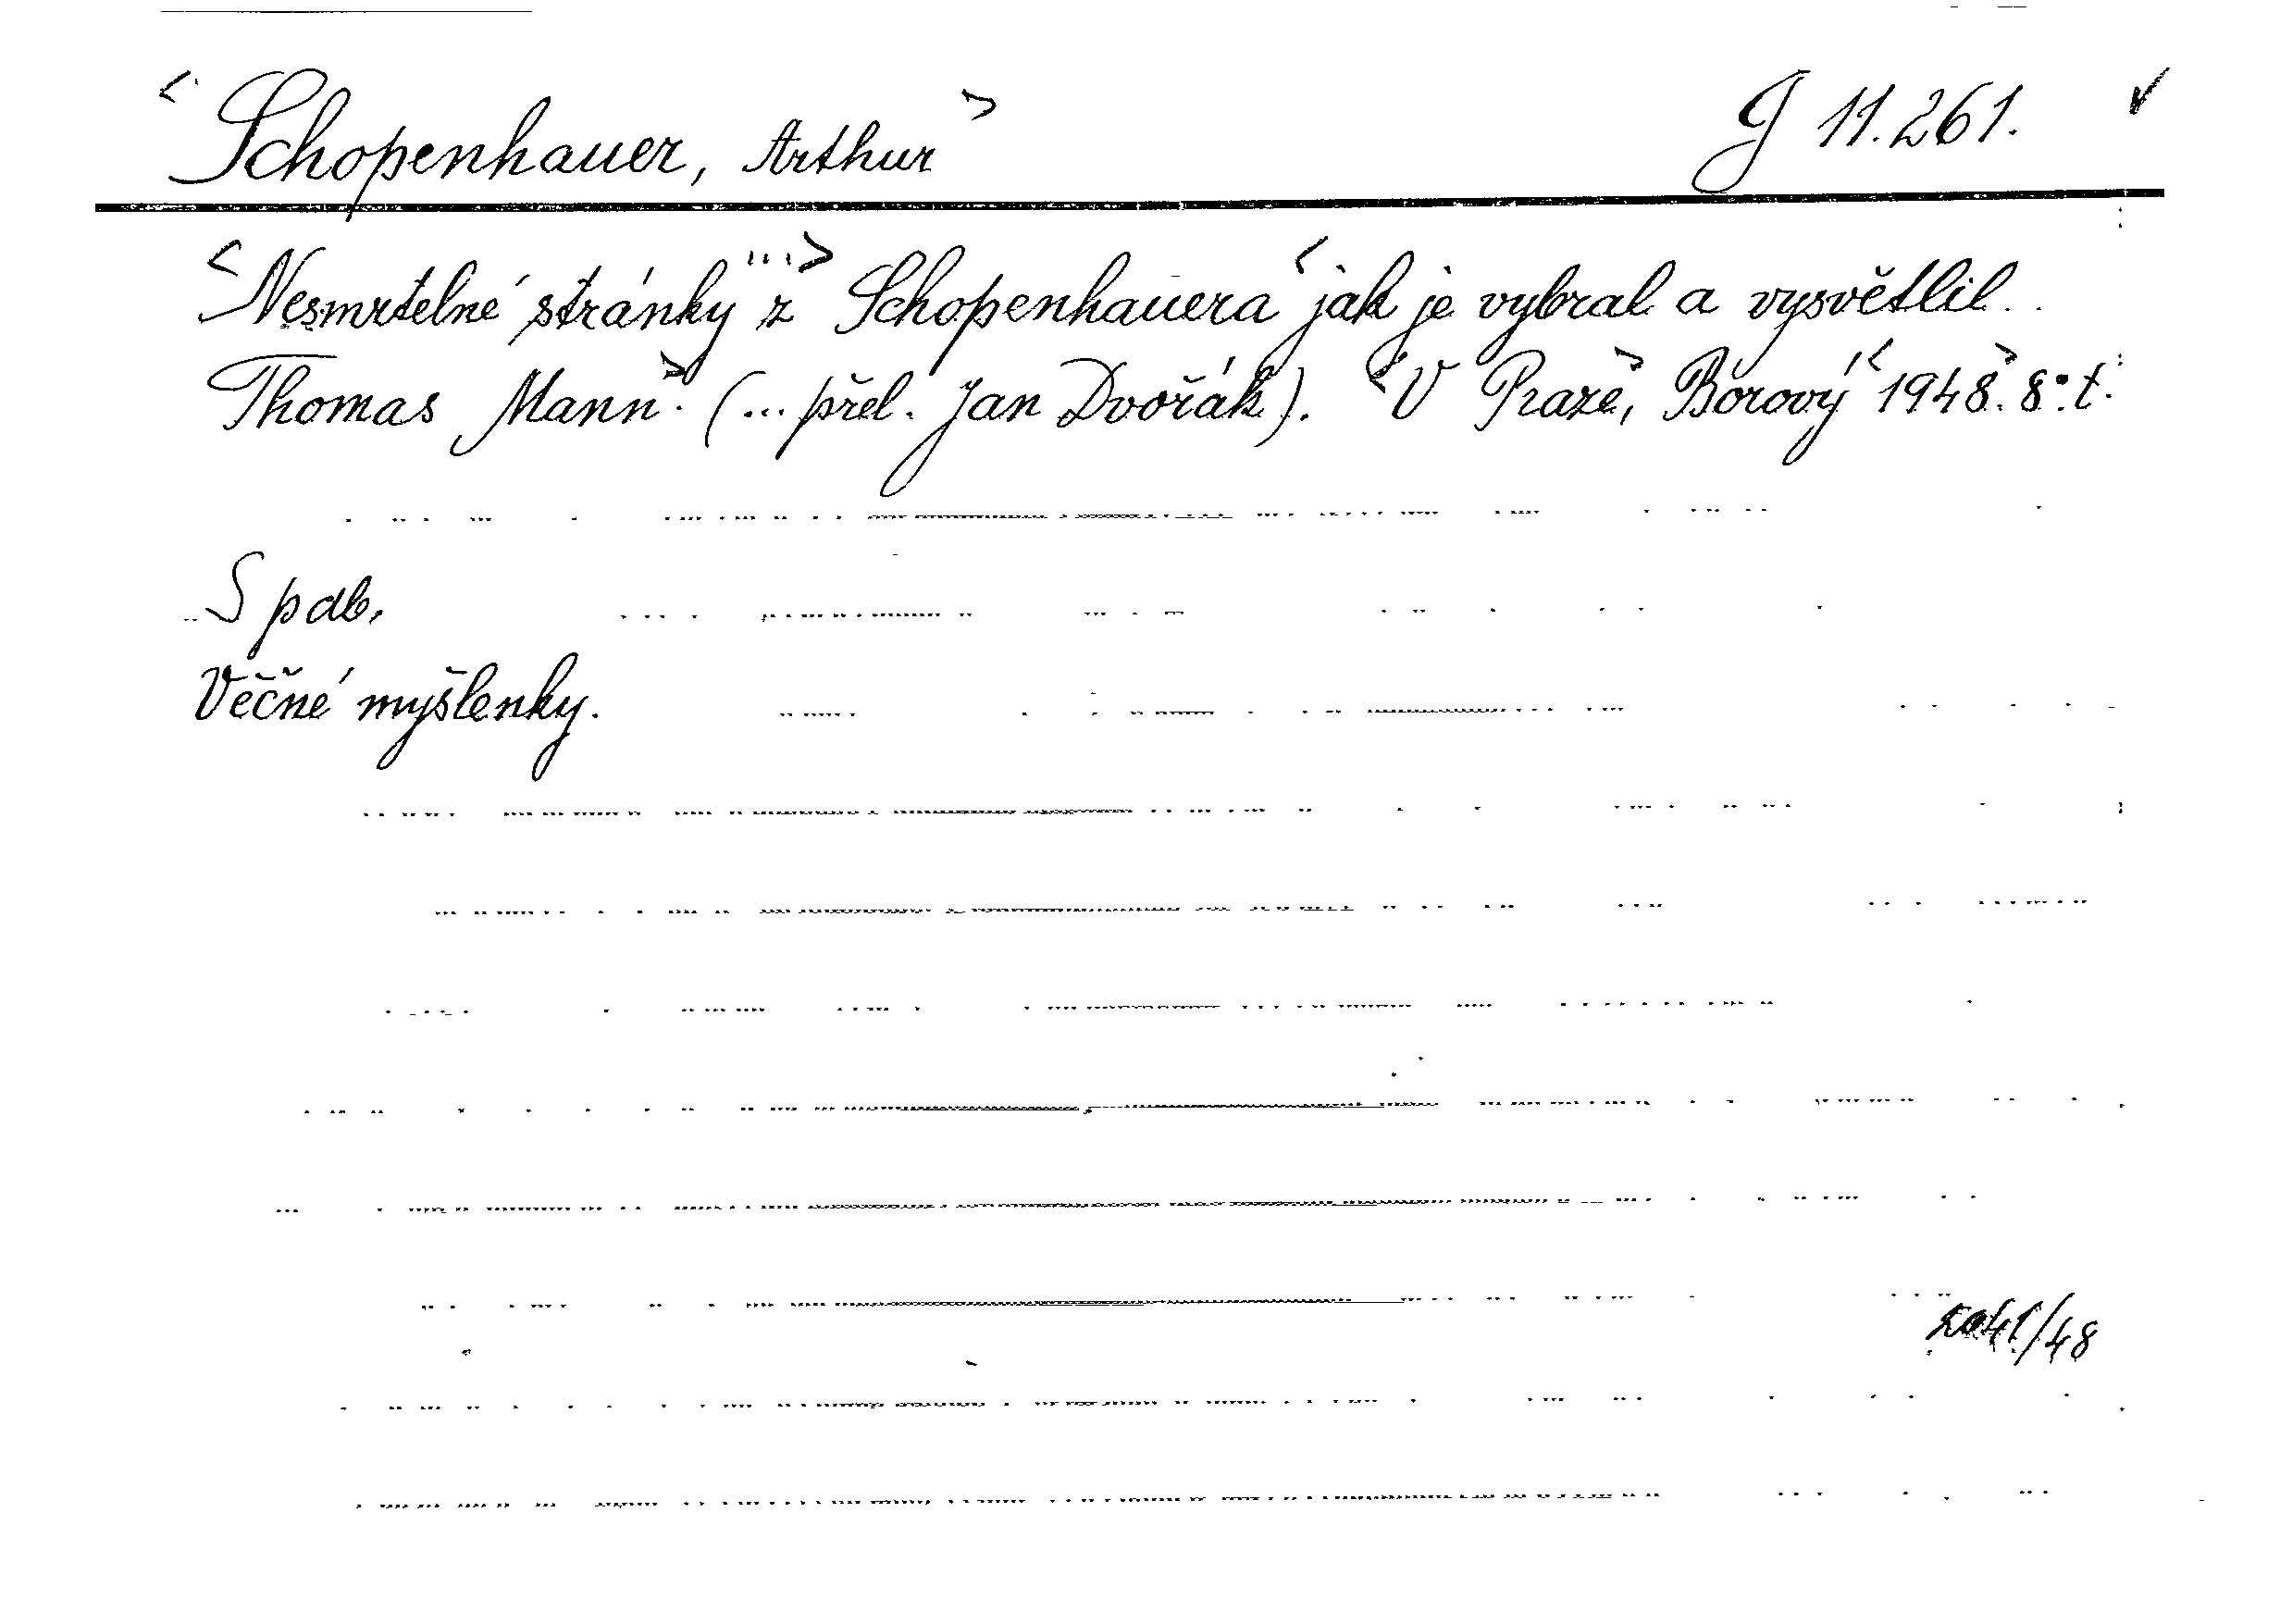 <Schopenhauer, Arthur> J 11.261.
<Nesmrtelné stránky ...> z Schopenhauera <jak je vybral a vysvětlil..
Thomas Mann>. (... přel. Jan Dvořák). <V Praze>, Borový <1948>. 8° t.
S pdb.
Věčné myšlenky.